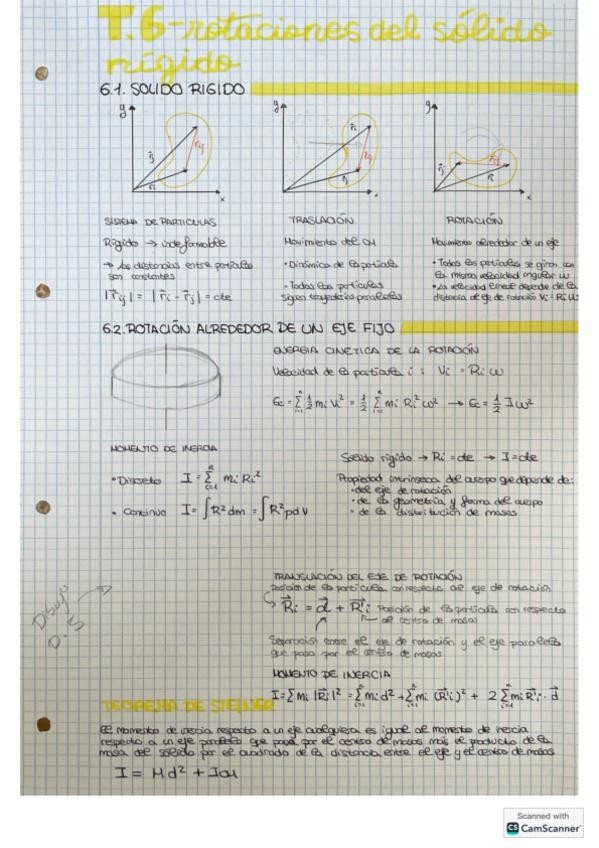 T.6-rotaciones del sólido
rígido
6.1. SOLIDO RIGIDO
y
x
y
x
y
x
SISTEMA DE PARTICULAS
TRASLACIÓN
ROTACIÓN
Rígido → indeformable
→ Las distancias entre partículas
son constantes
|r⃗ij| = |r⃗i - r⃗j| = cte
Movimiento del CM
• Dinámica de la partícula
• Todas las partículas
siguen trayectorias paralelas
Movimiento alrededor de un eje
• Todas las partículas se giran con
la misma velocidad angular ω
• La velocidad lineal depende de la
distancia al eje de rotación Vi = Ri ω
6.2. ROTACIÓN ALREDEDOR DE UN EJE FIJO
ENERGIA CINETICA DE LA ROTACIÓN
Velocidad de la partícula i : Vi = Ri ω
Ec = Σ 1/2 mi Vi² = 1/2 Σ mi Ri² ω² → Ec = 1/2 I ω²
MOMENTO DE INERCIA
• Discreto I = Σ mi Ri²
• Continuo I = ∫R² dm = ∫R² ρ dV
Solido rígido → Ri = cte → I = cte
Propiedad intrínseca del cuerpo que depende de:
• del eje de rotación
• de la geometría y forma del cuerpo
• de la distribución de masas
Dibujo
D.S
TRANSLACIÓN DEL EJE DE ROTACIÓN
Posición de la partícula con respecto al eje de rotación
R⃗i = d⃗ + R⃗'i Posición de la partícula con respecto
al centro de masas
Separación entre el eje de rotación y el eje paralelo
que pasa por el centro de masas
MOMENTO DE INERCIA
I = Σ mi |R⃗i|² = Σ mi d² + Σ mi (R⃗'i)² + 2 Σ mi R⃗'i · d⃗
TEOREMA DE STEINER
El momento de inercia respecto a un eje cualquiera es igual al momento de inercia
respecto a un eje paralelo que pasa por el centro de masas más el producto de la
masa del sólido por el cuadrado de la distancia entre el eje y el centro de masas
I = Md² + ICM
Scanned with
CS CamScanner